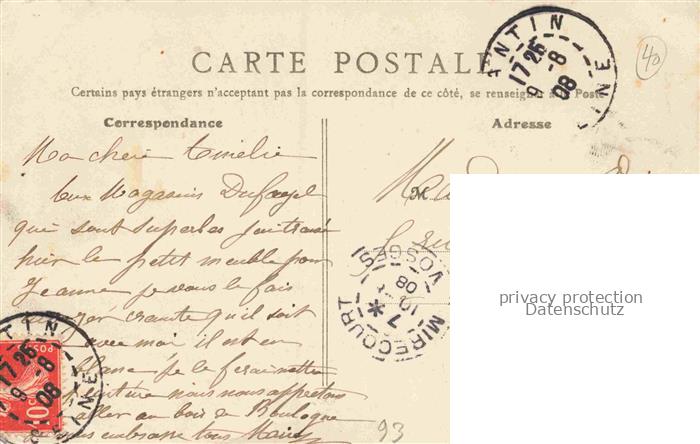 CARTE POSTALE
Certains pays étrangers n'acceptant pas la correspondance de ce côté, se renseigner à la Poste
Correspondance
Adresse
Ma chère Amélie
Aux Magasins Dufayel
qui sont superbes j'ai trouvé
hier le petit meuble pour
Jeanne je vous le fais
crainte qu'il soit
avec moi il est en
blanc je le ferai mettre
nous nous apprêtons
aller au bois de Boulogne
vous embrasse tous
M
ANTIN
17 25
9 -8
08
INE
40
MIRECOURT
VOSGES
7 *
10
08
NTIN
17 25
9 -8
08
INE
POSTES
10
93
privacy protection
Datenschutz